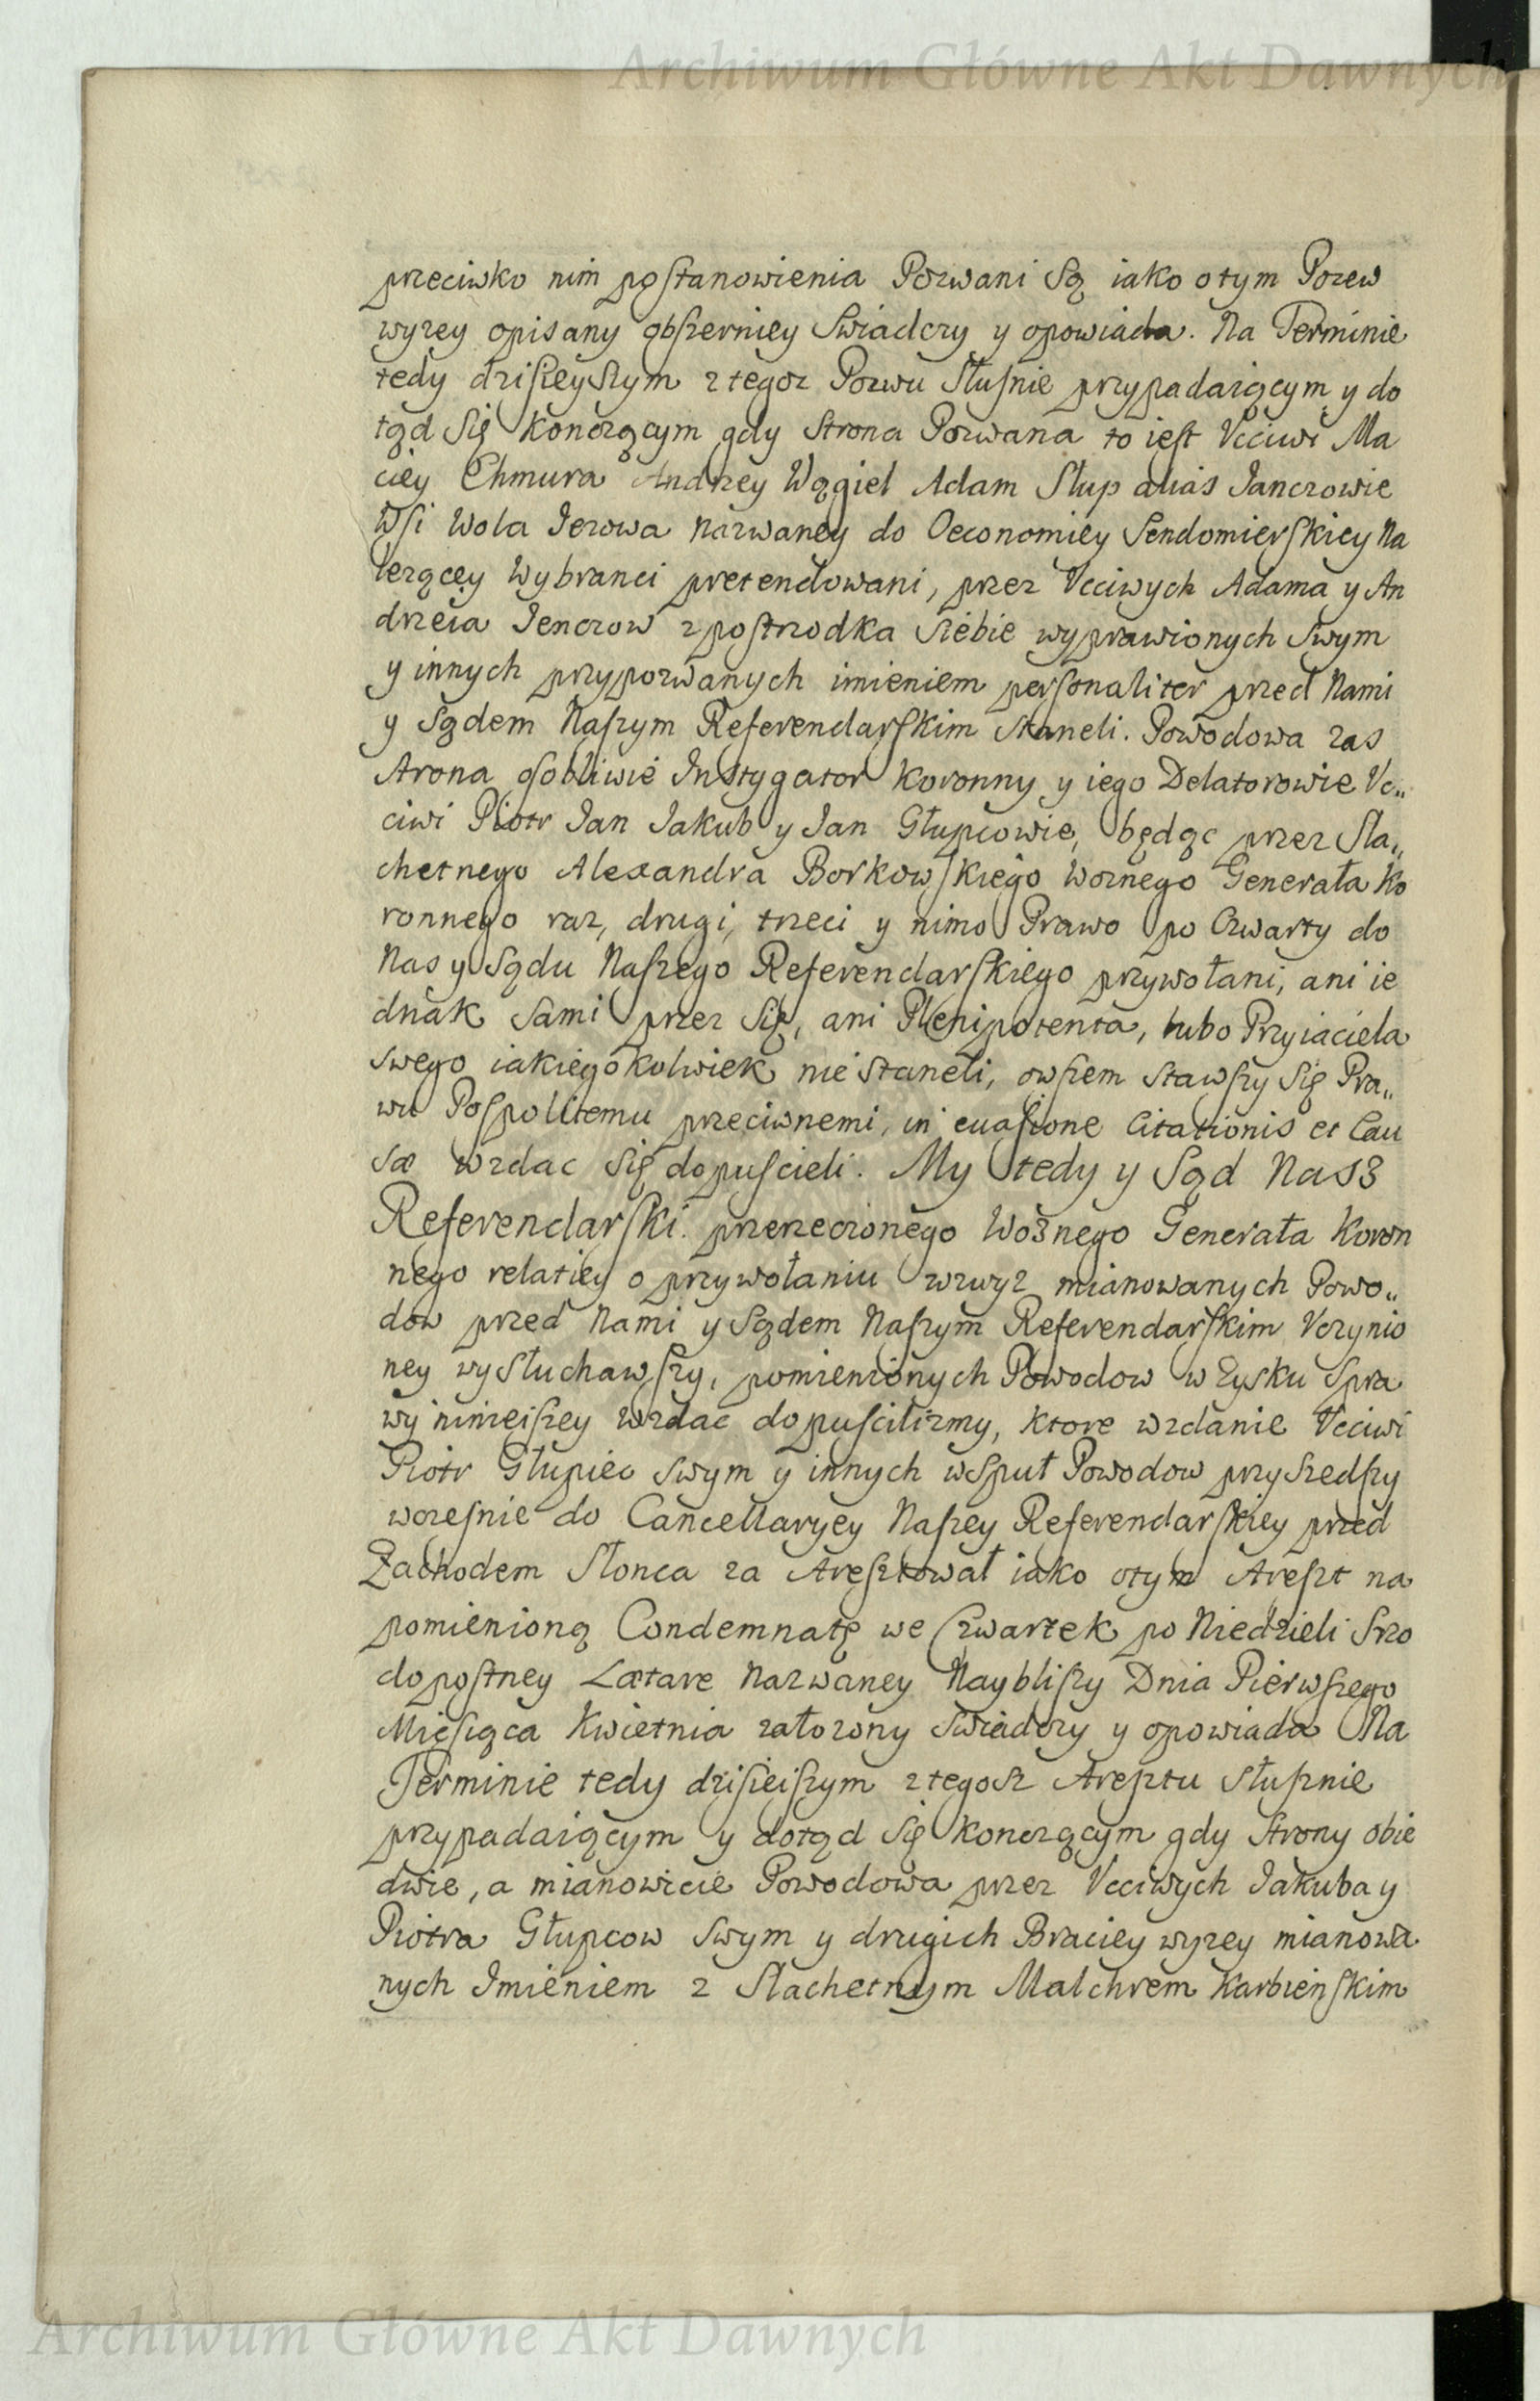 Archiwum Główne Akt Dawnych
przeciwko nim postanowienia Pozwani Są iako o tym Pozew
wyzey opisany obszerniey Swiadczy y opowiada. Na Terminie
tedy dzisieyszym z tegoz Pozwu Słusnie przypadaiącym y do
tąd Się Konczącym gdy Strona Pozwana to iest Vcciwi Ma
ciey Chmura Andrzey Wągiel Adam Słup alias Janczowie
Wsi Wola Jezowa Nazwaney do Oeconomiey Sendomierskiey Na
lezącey Wybranci pretendowani, przez Vcciwych Adama y An
drzeia Jenczow z postrzodka Siebie wyprawionych Swym
y innych przypozwanych imieniem personaliter przed Nami
y Sądem Naszym Referendarskim Staneli. Powodowa zas
Strona osobliwie Instygator Koronny y iego Delatorowie Vc„
ciwi Piotr Jan Jakub y Jan Głupcowie, będąc przez Sla„
chetnego Alexandra Borkowskiego Woznego Generała Ko
ronnego raz, drugi, trzeci y nimo Prawo po Czwarty do
Nas y Sądu Naszego Referendarskiego przywołani, ani ie
dnak Sami przez Się, ani Plenipotenta, lubo Przyiaciela
swego iakiegokolwiek nie Staneli, owszem Stawszy Się Pra„
wu Pospolitemu przeciwnemi, in euasione Citationis et Cau
sæ wzdac Się dopuscieli. My tedy y Sąd Nasz
Referendarski. przerzeczonego Woznego Generała Koron
nego relatiey o przywołaniu wzwyz mianowanych Powo„
dow przed Nami y Sądem Naszym Referendarskim Vczynio
ney wysłuchawszy, pomienionych Powodow w Zysku Spra
wy ninieiszey Wzdac dopuscilizmy, Ktore wzdanie Vcciwi
Piotr Głupiec Swym y innych wspuł Powodow przyszedszy
wczesnie do Cancellaryey Naszey Referendarskiey przed
Zachodem Słonca za Aresztował iako otym Areszt na
pomienioną Condemnatę we Czwartek po Niedzieli Srzo
dopostney Lætare Nazwaney Nayblizszy Dnia Pierwszego
Miesiąca Kwietnia załozony Swiadczy y opowiada Na
Terminie tedy dzisieiszym z tegosz Aresztu Słusznie
przypadaiącym y dotąd Się Konczącym gdy Strony obie
dwie, a mianowicie Powodowa przez Vcciwych Jakuba y
Piotra Głupcow Swym y drugich Braciey wyzey mianowa
nych Jmieniem z Slachetnym Malchrem Karbienskim
Archiwum Główne Akt Dawnych